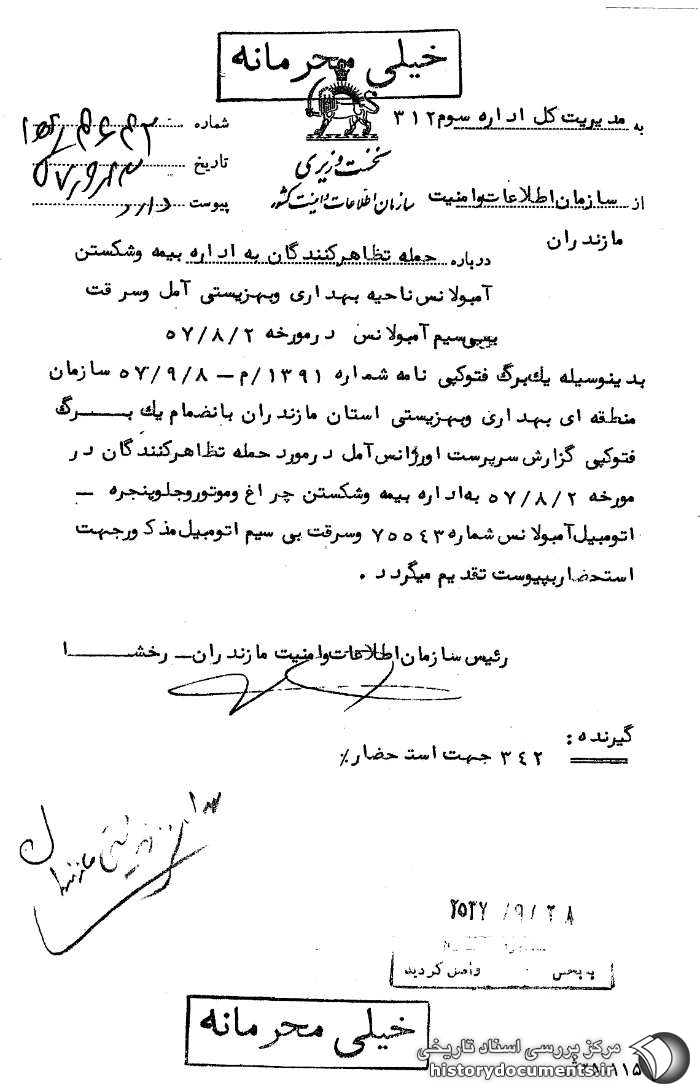 خیلی محرمانه
به مدیریت کل اداره سوم ۳۱۲
شماره
نخست وزیری
تاریخ
از سازمان اطلاعات وامنیت
سازمان اطلاعات وامنیت کشور
پیوست دارد
مازندران
درباره حمله تظاهرکنندگان به اداره بیمه وشکستن
آمبولانس ناحیه بهداری وبهزیستی آمل وسرقت
بیسیم آمبولانس درمورخه ۵۷/۸/۲
بدینوسیله یك برگ فتوکپی نامه شماره ۱۳۹۱/م – ۵۷/۹/۸ سازمان
منطقه ای بهداری وبهزیستی استان مازندران بانضمام یك برگ
فتوکپی گزارش سرپرست اورژانس آمل درمورد حمله تظاهرکنندگان در
مورخه ۵۷/۸/۲ به اداره بیمه وشکستن چراغ وموتوروجلوپنجره –
اتومبیل آمبولانس شماره ۷۵۵۴۳ وسرقت بی سیم اتومبیل مذکورجهت
استحضاربپیوست تقدیم میگردد .
رئیس سازمان اطلاعات وامنیت مازندران – رخشا
گیرنده :
۳۴۲ جهت استحضار٪
۲۵۳۷/۹/۲۸
به بخش واصل گردید
خیلی محرمانه
مرکز بررسی اسناد تاریخی
historydocuments.ir